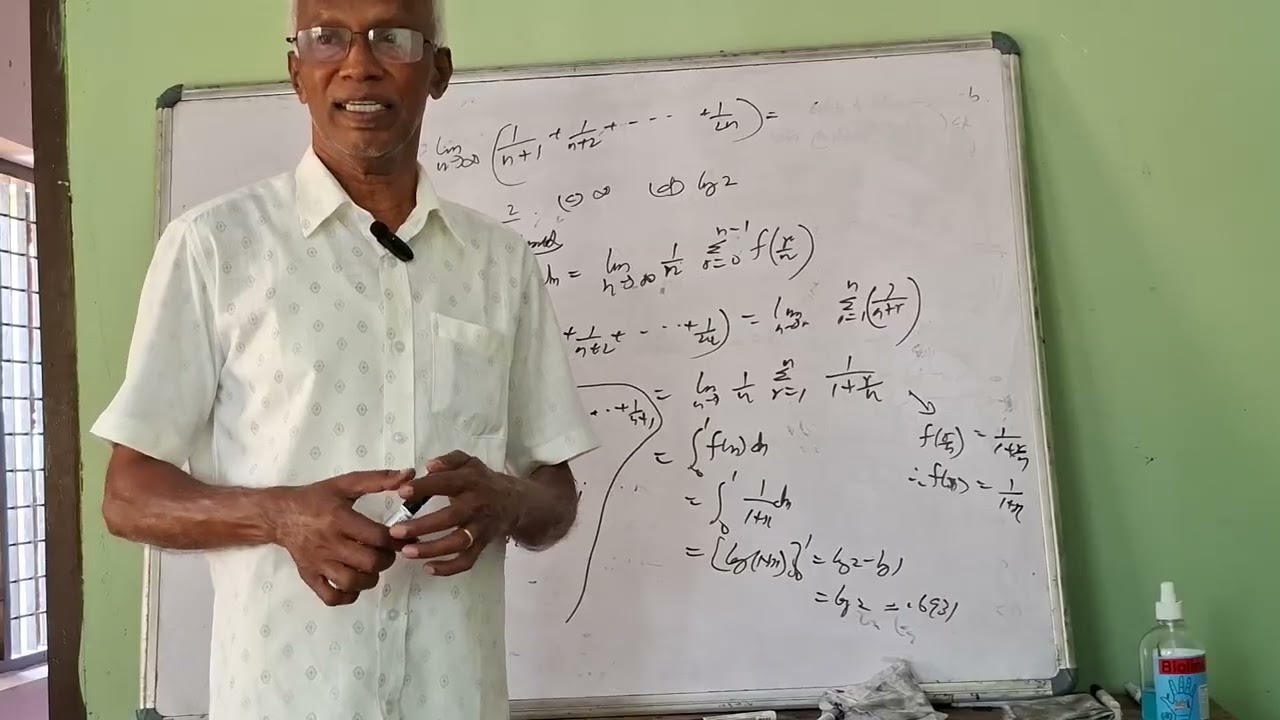 lim n→∞ (1/(n+1) + 1/(n+2) + - - - · · · + 1/2n) =
2 (c) ∞ (d) log 2
dx = lim n→∞ 1/n Σ r=0 n-1 f(r/n)
+ 1/(n+2) + - - · · · + 1/2n) = lim n→∞ Σ r=1 n (1/(n+r))
= lim n→ 1/n Σ r=1 n 1/(1+r/n)
· · + 1/(n+1)
f(r/n) = 1/(1+r/n)
= ∫0 1 f(x) dx
∴ f(x) = 1/(1+x)
= ∫0 1 1/(1+x) dx
= [log(1+x)]0 1 = log 2 - log 1
= log 2 = .6931
Biolin